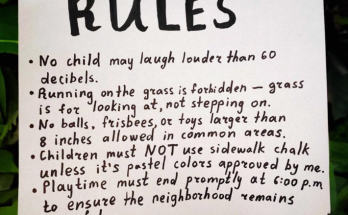 RULES
• No child may laugh louder than 60
decibels.
• Running on the grass is forbidden — grass
is for looking at, not stepping on.
• No balls, frisbees, or toys larger than
8 inches allowed in common areas.
• Children must NOT use sidewalk chalk
unless it's pastel colors approved by me.
• Playtime must end promptly at 6:00 p.m
to ensure the neighborhood remains